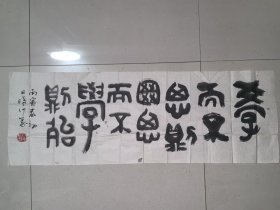 學
而不
思則
罔思
而不
學
則殆